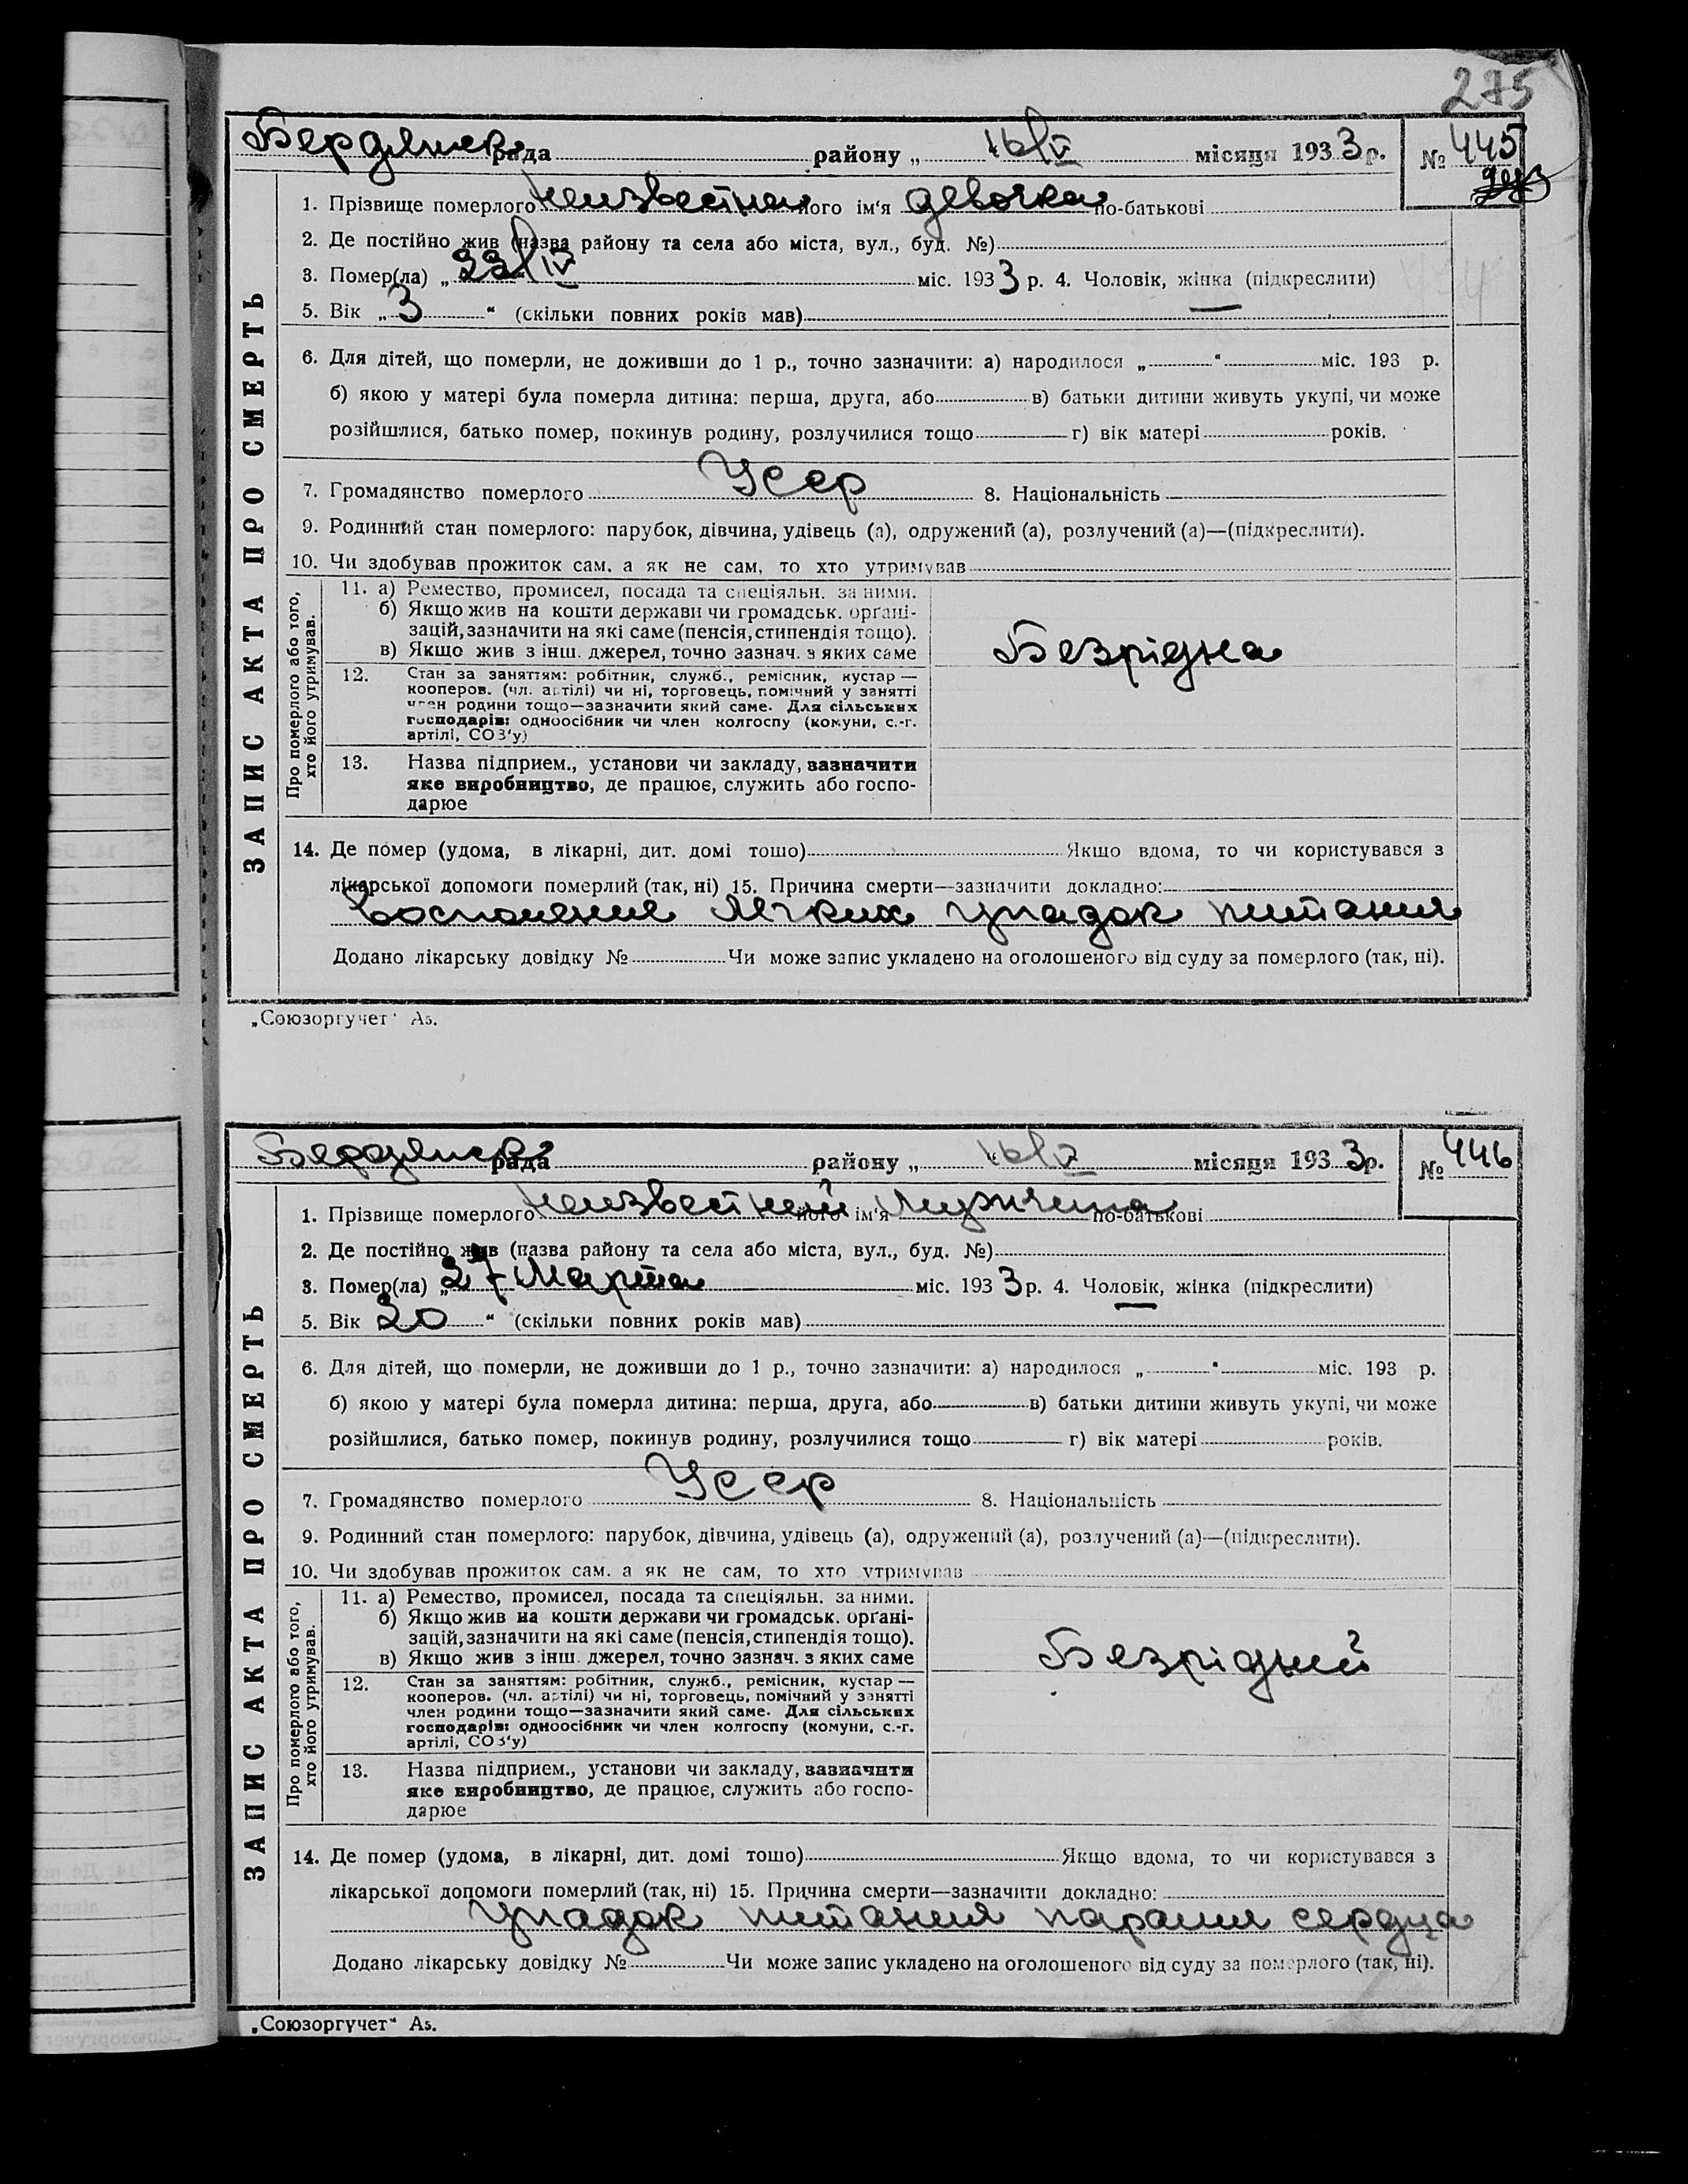 275
Бердянск рада району „ 16/V місяця 1933 р. № 445
ЗАПИС АКТА ПРО СМЕРТЬ
1. Прізвище померлого неизвестная його ім'я девочка по-батькові
2. Де постійно жив (назва району та села або міста, вул., буд. №)
3. Помер(ла) „ 22/IV міс. 1933 р. 4. Чоловік, жінка (підкреслити)
5. Вік „ 3 “ (скільки повних років мав)
6. Для дітей, що померли, не доживши до 1 р., точно зазначити: а) народилося „ “ міс. 193 р.
б) якою у матері була померла дитина: перша, друга, або в) батьки дитини живуть укупі, чи може
розійшлися, батько помер, покинув родину, розлучилися тощо г) вік матері років.
7. Громадянство померлого Усср 8. Національність
9. Родинний стан померлого: парубок, дівчина, удівець (а), одружений (а), розлучений (а)—(підкреслити).
10. Чи здобував прожиток сам, а як не сам, то хто утримував
Про померлого або того,
хто його утримував.
11. а) Ремество, промисел, посада та спеціяльн. за ними.
б) Якщо жив на кошти держави чи громадськ. орґані-
зацій, зазначити на які саме (пенсія, стипендія тощо).
в) Якщо жив з інш. джерел, точно зазнач. з яких саме
Безрідна
12. Стан за заняттям: робітник, служб., ремісник, кустар —
кооперов. (чл. артілі) чи ні, торговець, помічний у занятті
член родини тощо—зазначити який саме. Для сільських
господарів: одноосібник чи член колгоспу (комуни, с.-г.
артілі, СОЗ'у)
13. Назва підприєм., установи чи закладу, зазначити
яке виробництво, де працює, служить або госпо-
дарює
14. Де помер (удома, в лікарні, дит. домі тощо) Якщо вдома, то чи користувався з
лікарської допомоги померлий (так, ні) 15. Причина смерти—зазначити докладно:
Восполение легких упадок питания
Додано лікарську довідку № Чи може запис укладено на оголошеного від суду за померлого (так, ні).
„Союзоргучет“ А5.
Бердянск рада району „ 16/V місяця 1933 р. № 446
ЗАПИС АКТА ПРО СМЕРТЬ
1. Прізвище померлого неизвестный його ім'я Мужчина по-батькові
2. Де постійно жив (назва району та села або міста, вул., буд. №)
3. Помер(ла) „ 27 Марта міс. 1933 р. 4. Чоловік, жінка (підкреслити)
5. Вік 20 “ (скільки повних років мав)
6. Для дітей, що померли, не доживши до 1 р., точно зазначити: а) народилося „ “ міс. 193 р.
б) якою у матері була померла дитина: перша, друга, або в) батьки дитини живуть укупі, чи може
розійшлися, батько помер, покинув родину, розлучилися тощо г) вік матері років.
7. Громадянство померлого Усср 8. Національність
9. Родинний стан померлого: парубок, дівчина, удівець (а), одружений (а), розлучений (а)—(підкреслити).
10. Чи здобував прожиток сам, а як не сам, то хто утримував
Про померлого або того,
хто його утримував.
11. а) Ремество, промисел, посада та спеціяльн. за ними.
б) Якщо жив на кошти держави чи громадськ. орґані-
зацій, зазначити на які саме (пенсія, стипендія тощо).
в) Якщо жив з інш. джерел, точно зазнач. з яких саме
Безрідний
12. Стан за заняттям: робітник, служб., ремісник, кустар —
кооперов. (чл. артілі) чи ні, торговець, помічний у занятті
член родини тощо—зазначити який саме. Для сільських
господарів: одноосібник чи член колгоспу (комуни, с.-г.
артілі, СОЗ'у)
13. Назва підприєм., установи чи закладу, зазначити
яке виробництво, де працює, служить або госпо-
дарює
14. Де помер (удома, в лікарні, дит. домі тощо) Якщо вдома, то чи користувався з
лікарської допомоги померлий (так, ні) 15. Причина смерти—зазначити докладно:
Упадок питания паралич сердца
Додано лікарську довідку № Чи може запис укладено на оголошеного від суду за померлого (так, ні).
„Союзоргучет“ А5.